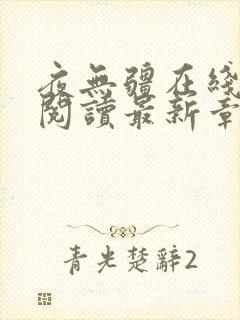 夜無疆在綫
閱讀最新章
青光楚辭2